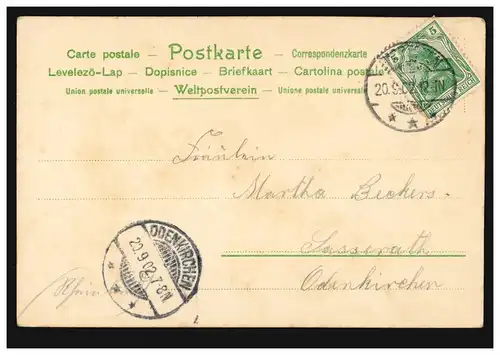 Carte postale - Postkarte - Correspondenzkarte
Levelezö-Lap - Dopisnice - Briefkaart - Cartolina postale
Union postale universelle - Weltpostverein - Unione postale universale
5
20.9.02.12-1N
Fräulein
Martha Beckers.
Sasserath
Odenkirchen
Rhein
ODENKIRCHEN
20.9.02.7-8N